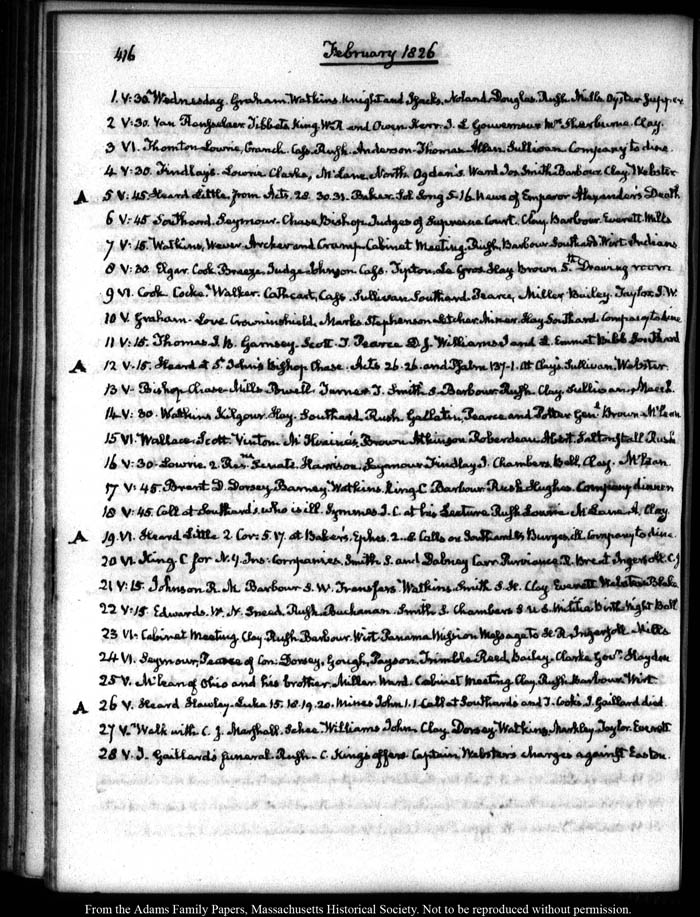 416
February 1826
1. V:30. Wednesday. Graham. Watkins. Knight and Isacks. Noland. Douglas. Rush. Mills. Oyster Supper
2 V:30. Van Rensselaer Tibbets. King W. R and Owen. Kerr. I. L Gouverneur Wm Sherburne. Clay.
3 VI. Thornton Lowrie, Cranch. Cass. Rush. Anderson. Thomas. Allen. Sullivan Company to dine.
4 V:30. Findlay's. Lowrie Clarke, McLane. North. Ogden's. Ward Jos. Smith. Barbour. Clay. Webster
A 5 V:45 Heard Little, from Acts. 28. 30.31. Baker. Sol. Song 5-16. News of Emperor Alexander's Death
6 V:45 Southard. Seymour. Chase Bishop. Judges of Supreme Court. Clay. Barbour. Everett. Mills
7 V:15. Watkins, Wever Archer and Crump. Cabinet Meeting. Rush, Barbour. Southard. Wirt. Indians
8 V:30. Elgar. Cook Breeze. Judge Johnson. Cass. Tipton, Le Gros. Hay Brown 5th Drawing room
9 VI. Cook. Cocke. Walker. Cathcart, Cass. Sullivan. Southard. Pearce, Miller Bailey. Taylor. J. W.
10 V. Graham. Love. Crowninshield. Marks. Stephenson Letcher. Miner. Hay Southard. Company to dine
11 V:15. Thomas J. B. Garnsey. Scott. J. Pearce D. J. Williams J and L. Emmet Bibb Southard
A 12 V:15. Heard at St John's Bishop Chase. Acts 26. 26. and Psalm 137-1. At Clay's Sullivan. Webster.
13 V- Bishop Chase. Mills Powell. Turner J. Smith S. Barbour. Rush. Clay. Sullivan.
14 V:30. Watkins Kilgour. Hay. Southard. Rush. Gallatin, Pearce and Potter Genl Brown. McLean
15 VI. Wallace. Scott. Vinton. Brown. Atkinson. Roberdeau. Abert. Saltonstall Rush
16 V:30. Lowrie. 2 Senate. Harrison. Seymour. Findlay J. Chambers. Ball, Clay. McLean.
17 V:45. Brent D. Dorsey. Barney. Watkins. King C. Barbour. Rush. Hughes. Company dinner
18 V:45. Call at Southard's, who is ill. Symmes J. C. at his Lecture Rush Lowrie. McLane A. Clay.
A 19. VI. Heard Little 2 Cor: 5. 17. at Baker's, Ephes. 2..8 Calls on Southard & Burges ill. Company to dine.
20 VI. King. C for N. Y. Ins: Companies. Smith S. and Dabney Carr. Purviance. R. Brent. Ingersoll. C. J
21 V:15. Johnson R. M. Barbour S. W. Transfers. Watkins. Smith S. H. Clay. Everett. Webster. Blake
22 V:15. Edwards. W. N. Sneed. Rush. Buchanan. Smith S. Chambers E U S. Militia. Birth Night Ball
23 VI. Cabinet Meeting Clay. Rush. Barbour. Wirt Panama Mission Message to H. R. Ingersoll. Mills
24 VI. Seymour, Pearce of Con: Dorsey, Gough, Payson, Trimble. Reed, Bailey. Clarke Govr. Hayden
25 V. McLean of Ohio and his brother. Miller. Ward. Cabinet Meeting. Clay. Rush. Barbour. Wirt
A 26 V. Heard Hawley. Luke 15. 18. 19. 20. Mines John 1. 1 Call at Southard's and J. Cook's J. Gaillard died.
27 V. Walk with C. J. Marshall. Williams John. Clay. Dorsey. Watkins. Markley. Taylor. Everett
28 V. J. Gaillard's funeral. Rush. C. King's offers. Captain Webster's charges against Easton.
From the Adams Family Papers, Massachusetts Historical Society. Not to be reproduced without permission.